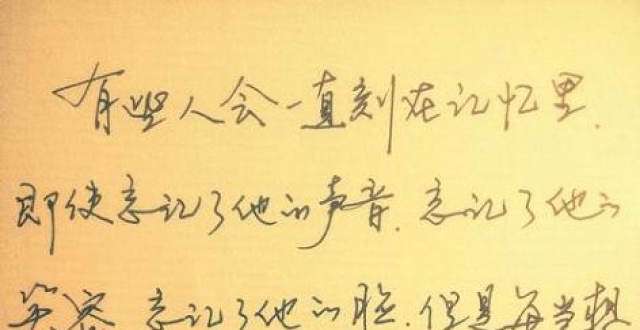 有些人会一直刻在记忆里,
即使忘记了他的声音,忘记了他的
笑容,忘记了他的脸,但是每当想